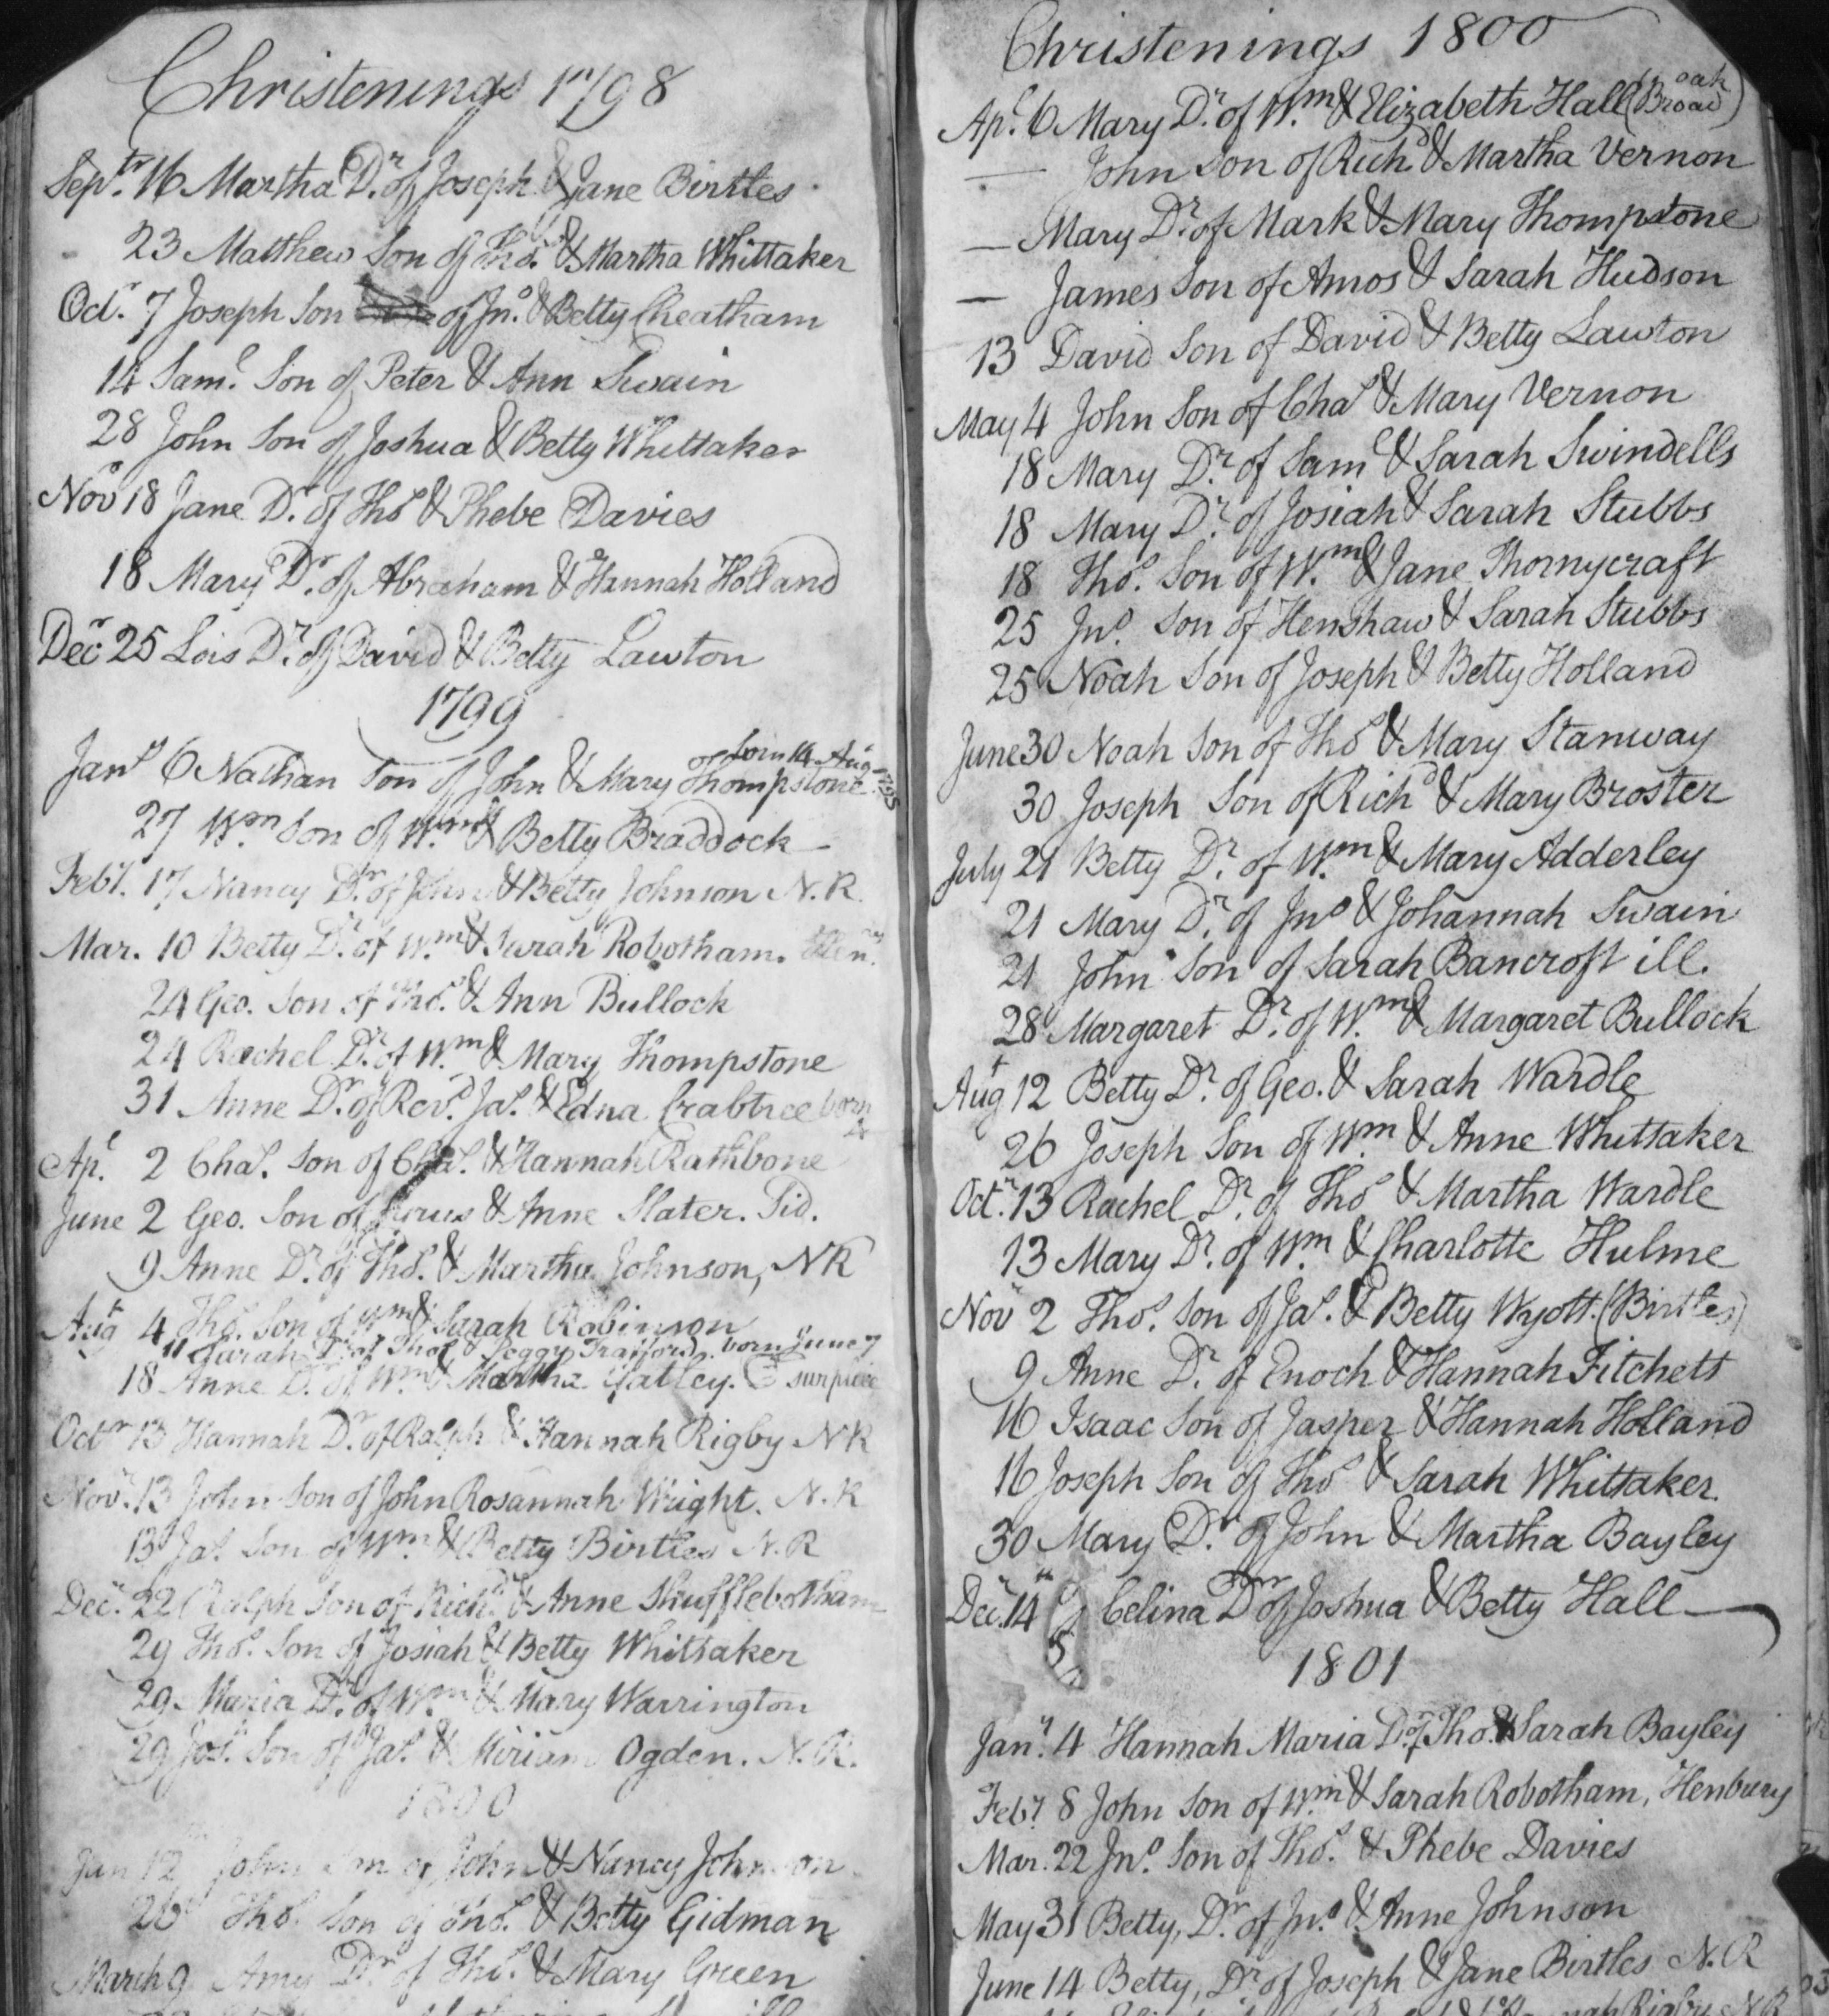 Christenings 1798
Sepr. 16 Martha Dr. of Joseph & Jane Birtles
23 Matthew Son of Thos. & Martha Whittaker
Octr. 7 Joseph Son of Jno. & Betty Cheatham
14 Saml. Son of Peter & Ann Swain
28 John Son of Joshua & Betty Whittaker
Novr 18 Jane Dr. of Thos & Phebe Davies
18 Mary Dr. of Abraham & Hannah Holland
Decr 25 Lois Dr. of David & Betty Lawton
1799
born 14 Aug 1798
Jany 6 Nathan Son of John & Mary Thompstone
27 Wm Son of Wm & Betty Braddock
Feby. 17 Nancy Dr. of John & Betty Johnson N.R.
Mar. 10 Betty Dr. of Wm & Sarah Robotham. Heny.
24 Geo. Son of Thos. & Ann Bullock
24 Rachel Dr. of Wm & Mary Thompstone
31 Anne Dr. of Revd. Jas. & Edna Crabtree born 4
Apl. 2 Chas. Son of Chas. & Hannah Rathbone
June 2 Geo. Son of & Anne Slater. Sid.
9 Anne Dr. of Thos. & Martha Johnson, NR
Augt 4 Thos. Son of Wm & Sarah Robinson
11 Sarah Dr. of Thos & Peggy Trafford. born June 7
18 Anne Dr. of Wm & Martha Gatley.
Octr 13 Hannah Dr. of Ralph & Hannah Rigby NR
Novr. 13 John Son of John Rosannah Wright. N.R
13 Jas. Son of Wm. & Betty Birtles N.R
Decr. 22 Ralph Son of Richd. & Anne Shufflebotham
29 Thos. Son of Josiah & Betty Whittaker
29 Maria Dr. of Wm & Mary Warrington
29 Jos. Son of Jas. & Miriam Ogden. N.R.
1800
Jan 12 John Son of John & Nancy Johnson
26 Thos. Son of Thos. & Betty Gidman
March 9 Amy Dr. of Thos. & Mary Green
Christenings 1800
Apl. 6 Mary Dr. of Wm & Elizabeth Hall (Broad oak)
— John Son of Richd & Martha Vernon
— Mary Dr. of Mark & Mary Thompstone
— James Son of Amos & Sarah Hudson
13 David Son of David & Betty Lawton
May 4 John Son of Chas & Mary Vernon
18 Mary Dr. of Saml & Sarah Swindells
18 Mary Dr. of Josiah & Sarah Stubbs
18 Thos. Son of Wm & Jane Thornycraft
25 Jno. Son of Henshaw & Sarah Stubbs
25 Noah Son of Joseph & Betty Holland
June 30 Noah Son of Thos & Mary Stanway
30 Joseph Son of Richd & Mary Broster
July 21 Betty Dr. of Wm & Mary Adderley
21 Mary Dr. of Jno & Johannah Swain
21 John Son of Sarah Bancroft ill.
28 Margaret Dr. of Wm & Margaret Bullock
Augt 12 Betty Dr. of Geo. & Sarah Wardle
26 Joseph Son of Wm & Anne Whittaker
Octr. 13 Rachel Dr. of Thos & Martha Wardle
13 Mary Dr. of Wm & Charlotte Hulme
Novr 2 Thos. Son of Jas. & Betty Wyott. (Birtles)
9 Anne Dr. of Enoch & Hannah Fitchett
16 Isaac Son of Jasper & Hannah Holland
16 Joseph Son of Thos & Sarah Whittaker
30 Mary Dr. of John & Martha Bayley
Decr. 14 Celina Dr of Joshua & Betty Hall
1801
Jany. 4 Hannah Maria Dr. of Thos. & Sarah Bayley
Feby. 8 John Son of Wm & Sarah Robotham, Henbury
Mar. 22 Jno. Son of Thos. & Phebe Davies
May 31 Betty, Dr. of Jno. & Anne Johnson
June 14 Betty, Dr. of Joseph & Jane Birtles N.R